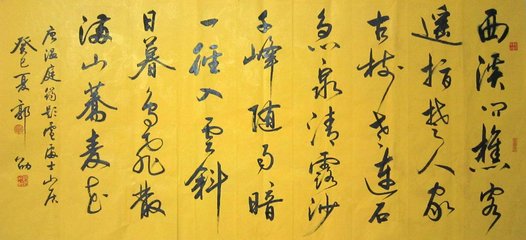 西溪问樵客
遥指楚人家
古树老连石
急泉清露沙
千峰随雨暗
一徑入雲斜
日暮鸟飛散
满山蕎麦花
唐温庭筠题盧處士山居
癸巳夏郭